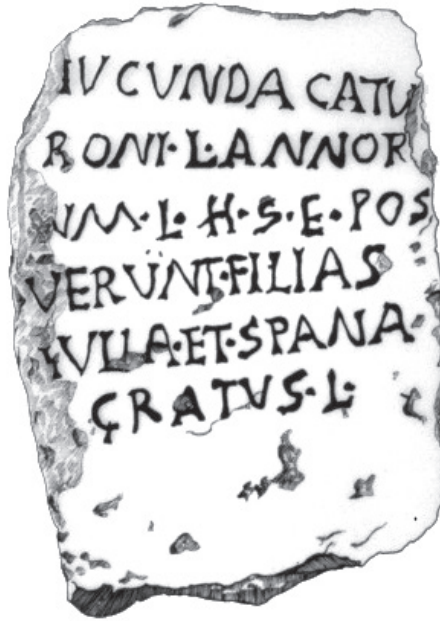 IVCUNDA CATU
RONI·L·ANNOR
VM·L·H·S·E·POS
VERUNT·FILIAS
IVLLA·ET·SPANA·
GRATVS·L·